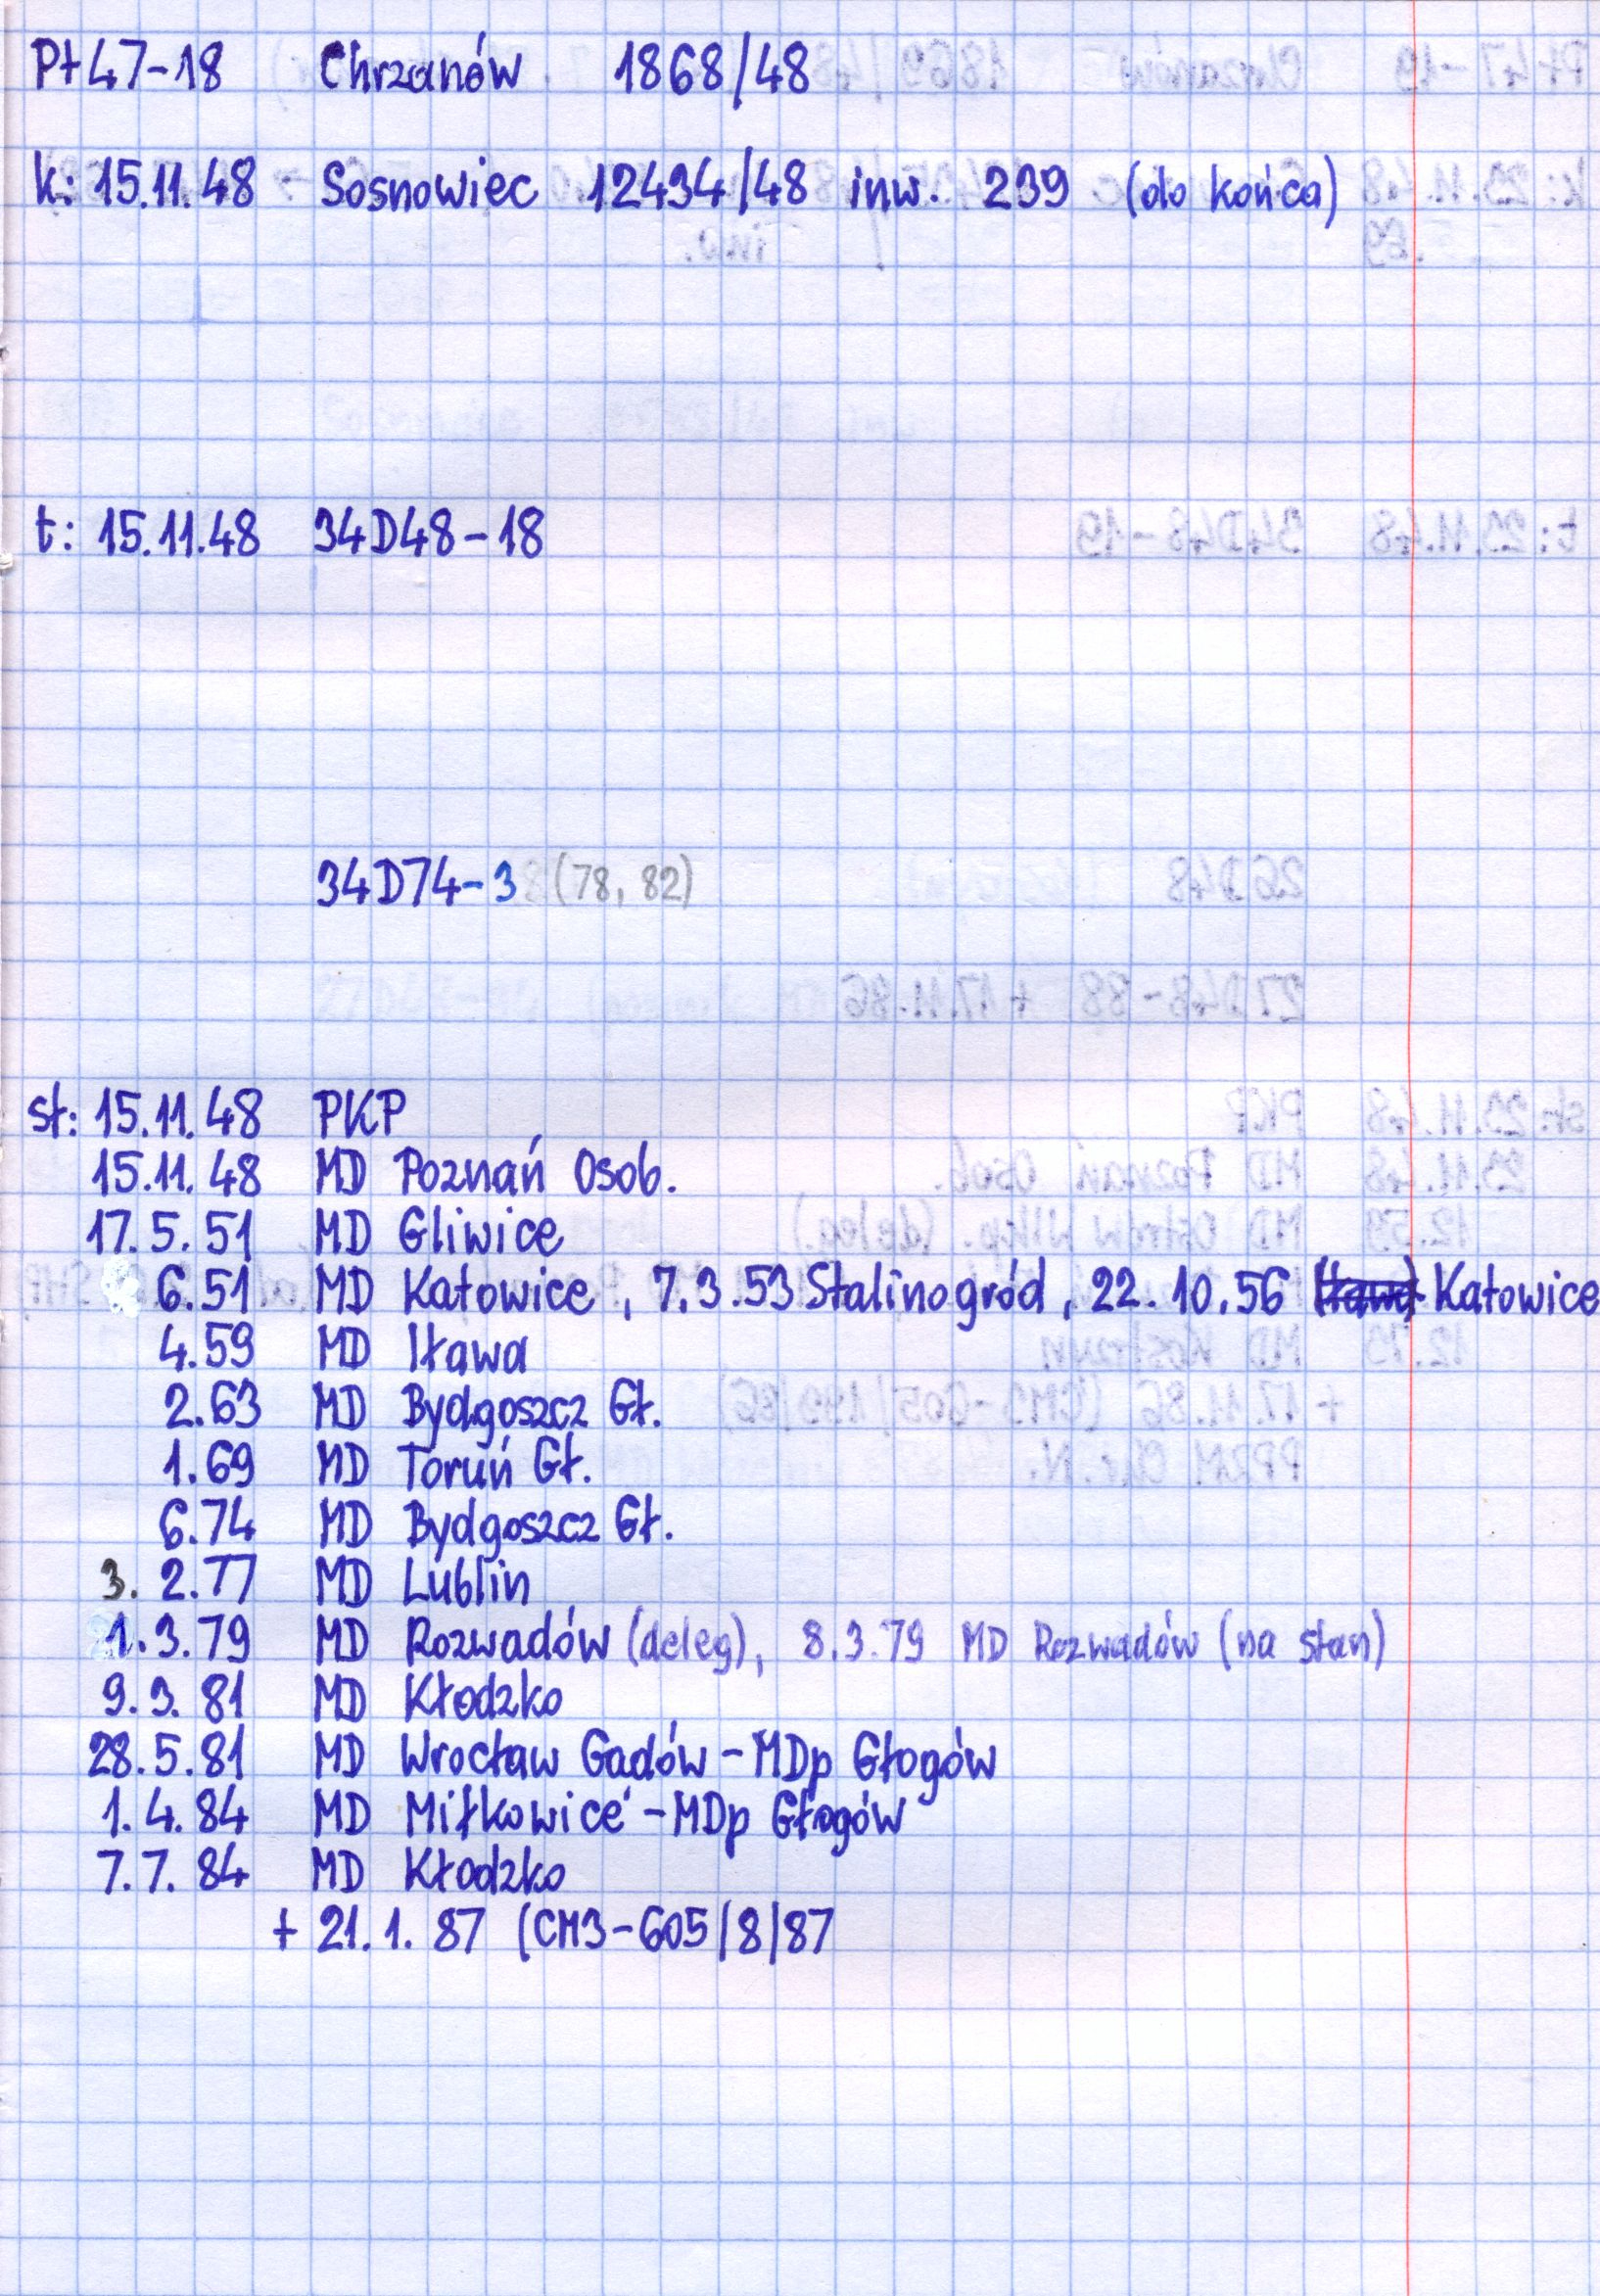 Pt47-18 Chrzanów 1868/48
k: 15.11.48 Sosnowiec 12434/48 inw. 239 (do końca)
t: 15.11.48 34D48-18
34D74-3 (78, 82)
st: 15.11.48 PKP
15.11.48 MD Poznań Osob.
17.5.51 MD Gliwice
6.51 MD Katowice, 7.3.53 Stalinogród, 22.10.56 Katowice
4.59 MD Iława
2.63 MD Bydgoszcz Gł.
1.69 MD Toruń Gł.
6.74 MD Bydgoszcz Gł.
3.2.77 MD Lublin
1.3.79 MD Rozwadów (deleg), 8.3.79 MD Rozwadów (na stan)
9.3.81 MD Kłodzko
28.5.81 MD Wrocław Gadów - MDp Głogów
1.4.84 MD Miłkowice - MDp Głogów
7.7.84 MD Kłodzko
+ 21.1.87 (CM3-605/8/87